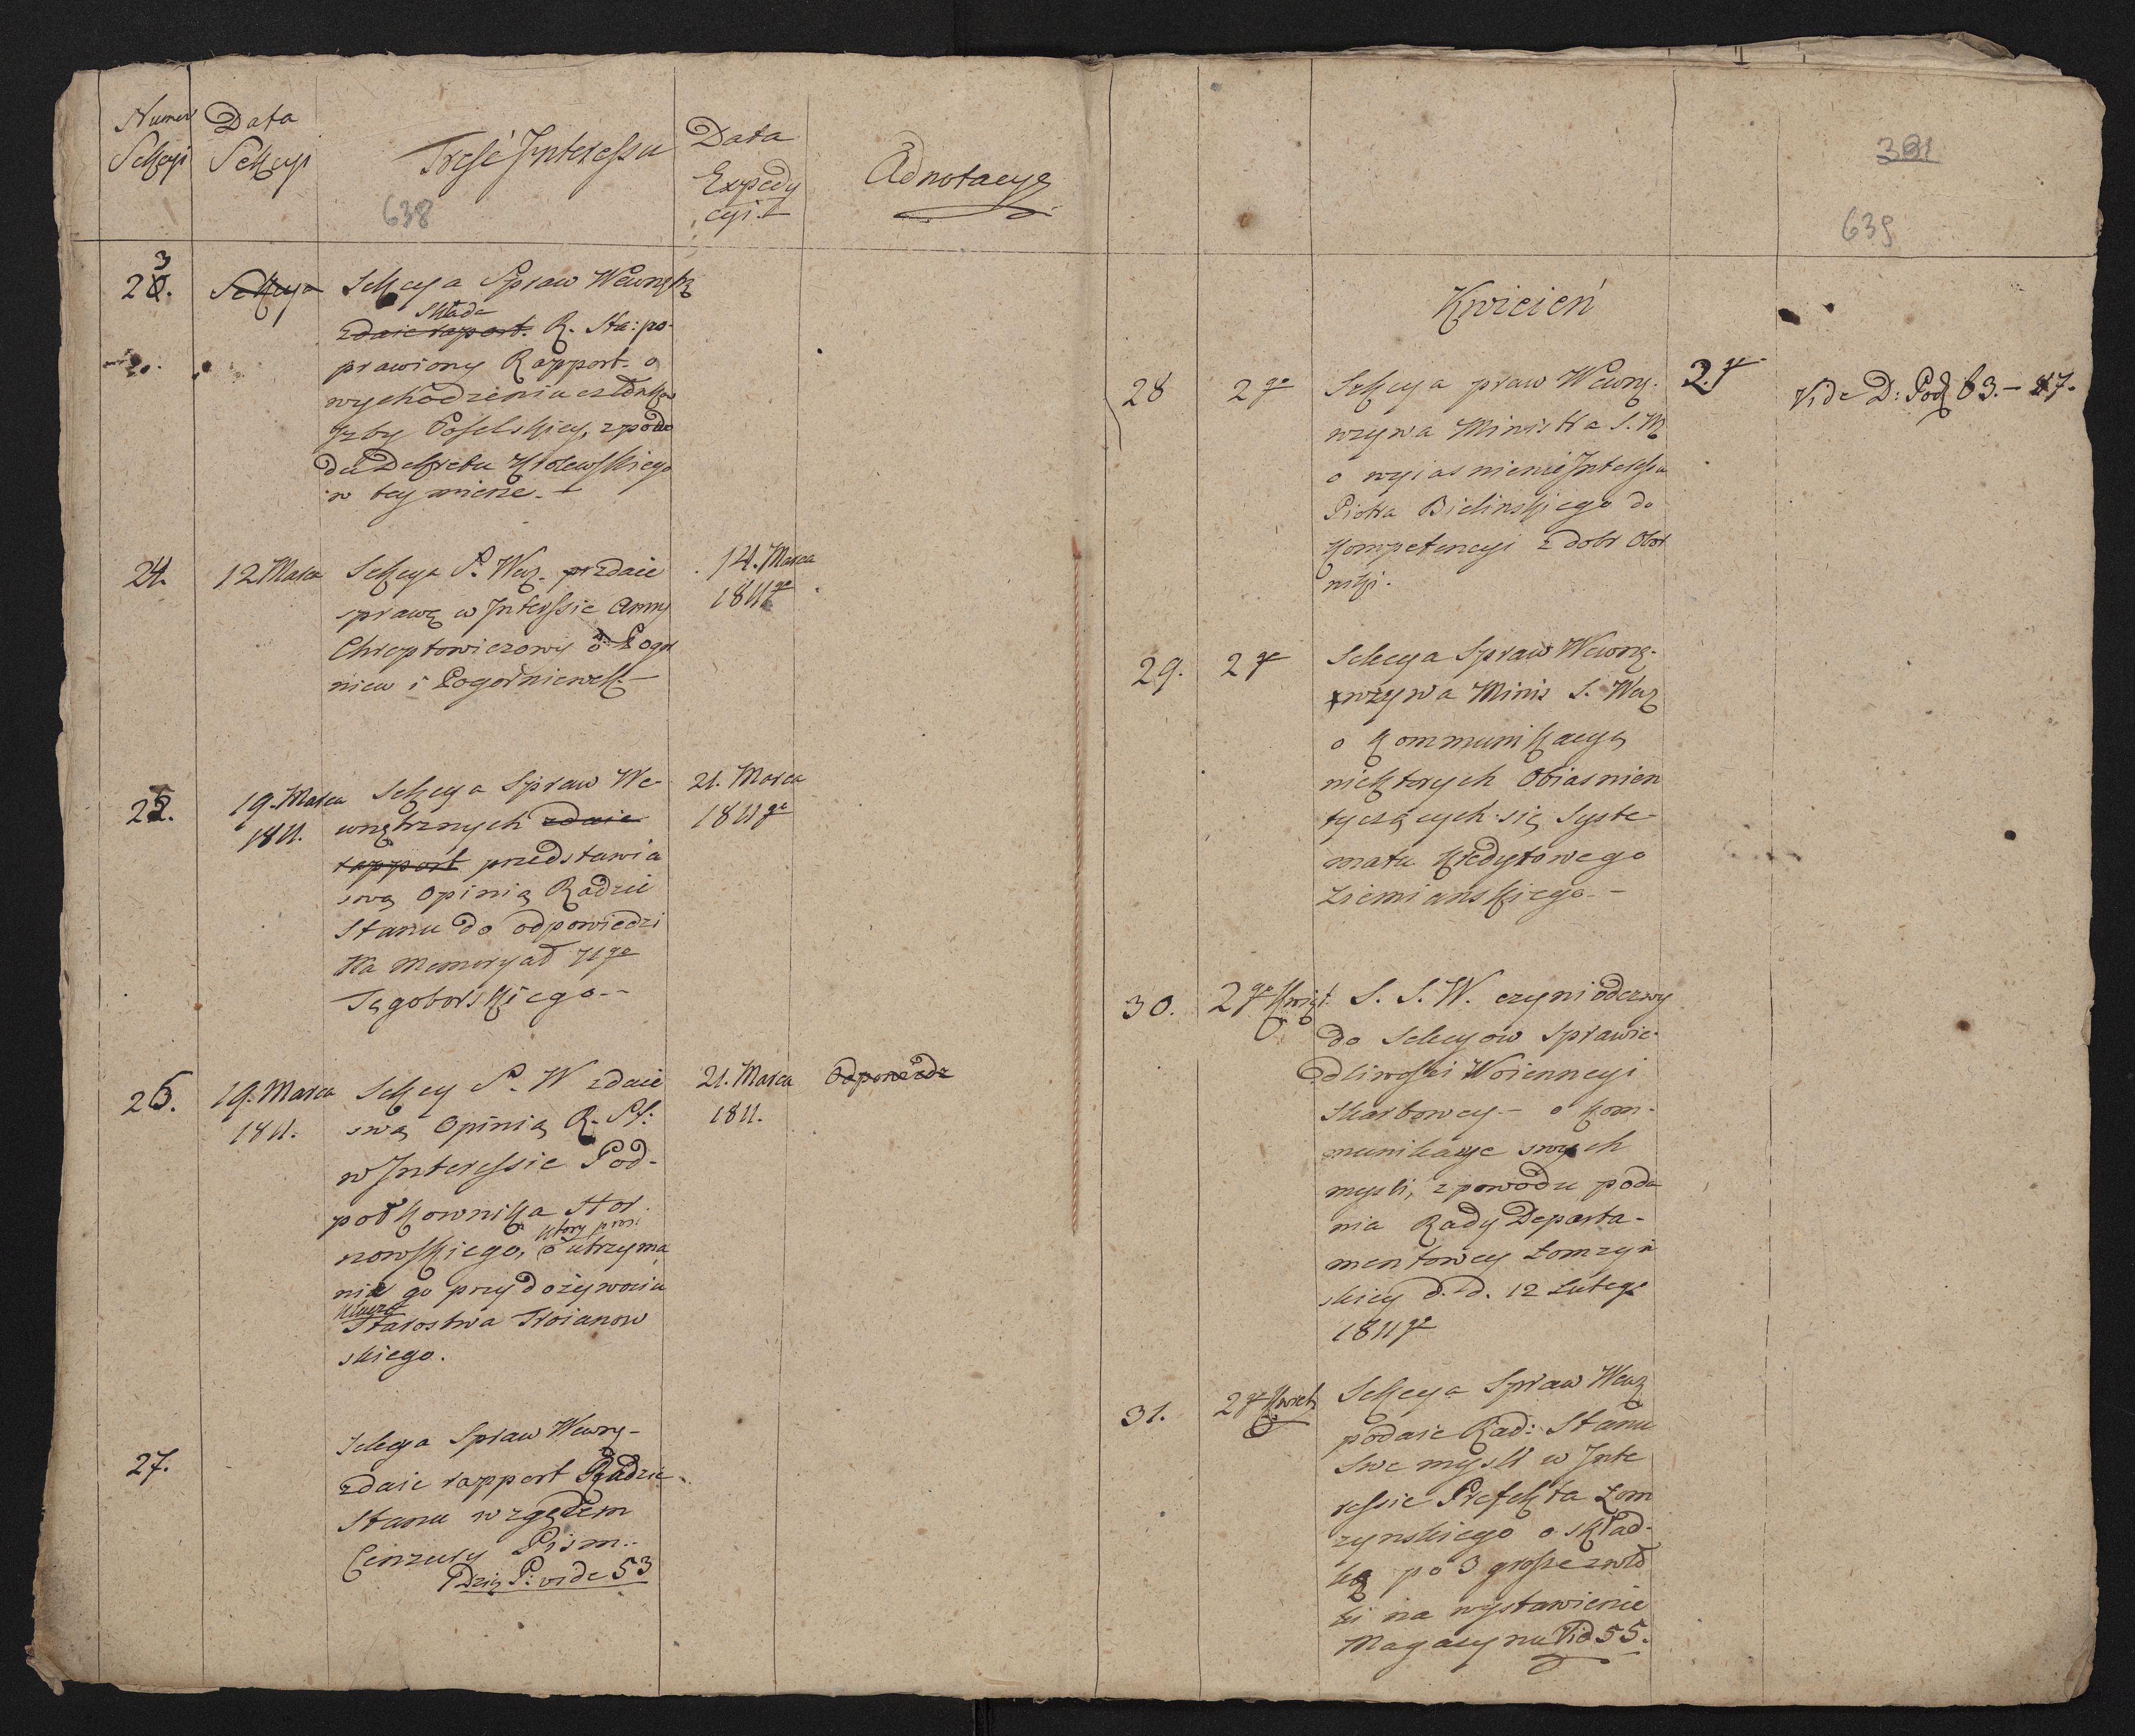 Numer Sekcyi
Data Sekcyi
Treść Interessu
Data Expedycyi.
Adnotacye
638
23.
Sekcya
Sekcya Spraw Wewnętrz
składa
zdaie raport. R. Sta: po-
prawiony Rapport o
wychodzeniu członków
Izby Poselskiey, z powo
du Dekretu Krolewskiego
w tey mierze.
24.
12 Marca
Sekcya S. Wew. zdaie
sprawę w Interssie Anny
Chreptowiczowy o Pogor
niew i Pogorniewek
14. Marca
1811 go
25.
19. Marca
1811.
Sekcya Spraw We-
wnętrznych zdaie
rapport przedstawia
swą Opinią Radzie
Stanu do odpowiedzi
Na Memoryał JP go
Tęgoborskiego
21. Marca
1811 go
26.
19. Marca
1811.
Sekcy S. W zdaie
swą Opinią R. St:
w Interessie Pod-
połkownika Hor
który prosi
nowskiego, o utrzyma
nie go przy dożywociu
klucza
Starostwa Troianow
skiego.
21. Marca
1811.
Odpowiedz
27.
Sekcya Spraw Wewn-
zdaie rapport Radzie
Stanu względem
Cenzury Pism..
Dzie P: vide 53
381
639
Kwiecień
28
2 go
Sekcya praw Wewn.
wzywa Ministra S. W
o wyiasnienie Interessu
Piotra Bielinskiego do
kompetencyi z dobr Obor
niki.
2. go
Vide D: Pod 63. - 47.
29.
2 go
Sekcya Spraw Wewnę-
wzywa Minis S. Wew
o kommunikacyą
niektorych Obiasnien
tyczących się Syste-
matu kredytowego
Ziemianskiego.
30.
2 go Kwiet.
S. S. W. czyni odezwy
do Sekcyow Sprawie-
dliwości Woienneyi
Skarbowey - o kom-
munikacye swych
mysli, z powodu poda
nia Rady Departa-
mentowey Łomzyn
skiey d. d. 12 Lutego
1811 go
31.
2 go Kwiet.
Sekcya Spraw Wew
podaie Rad: Stanu
Swe mysli w Inte
ressie Prefekta Łom
zynskiego o skład-
kę po 3 grosze z wło
ki na wystawienie
Magazynu Vid 55.